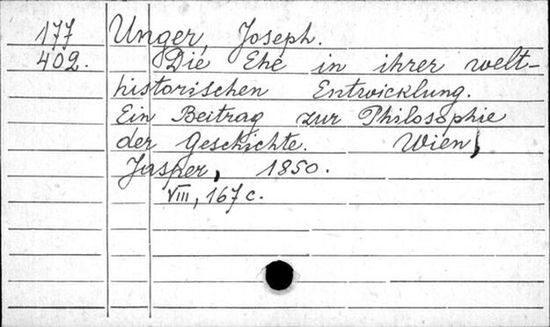 177 Unger, Joseph.
402. Die Ehe in ihrer welt-
historischen Entwicklung.
Ein Beitrag zur Philosophie
der Geschichte. Wien,
Jasper, 1850.
VIII, 167 с.